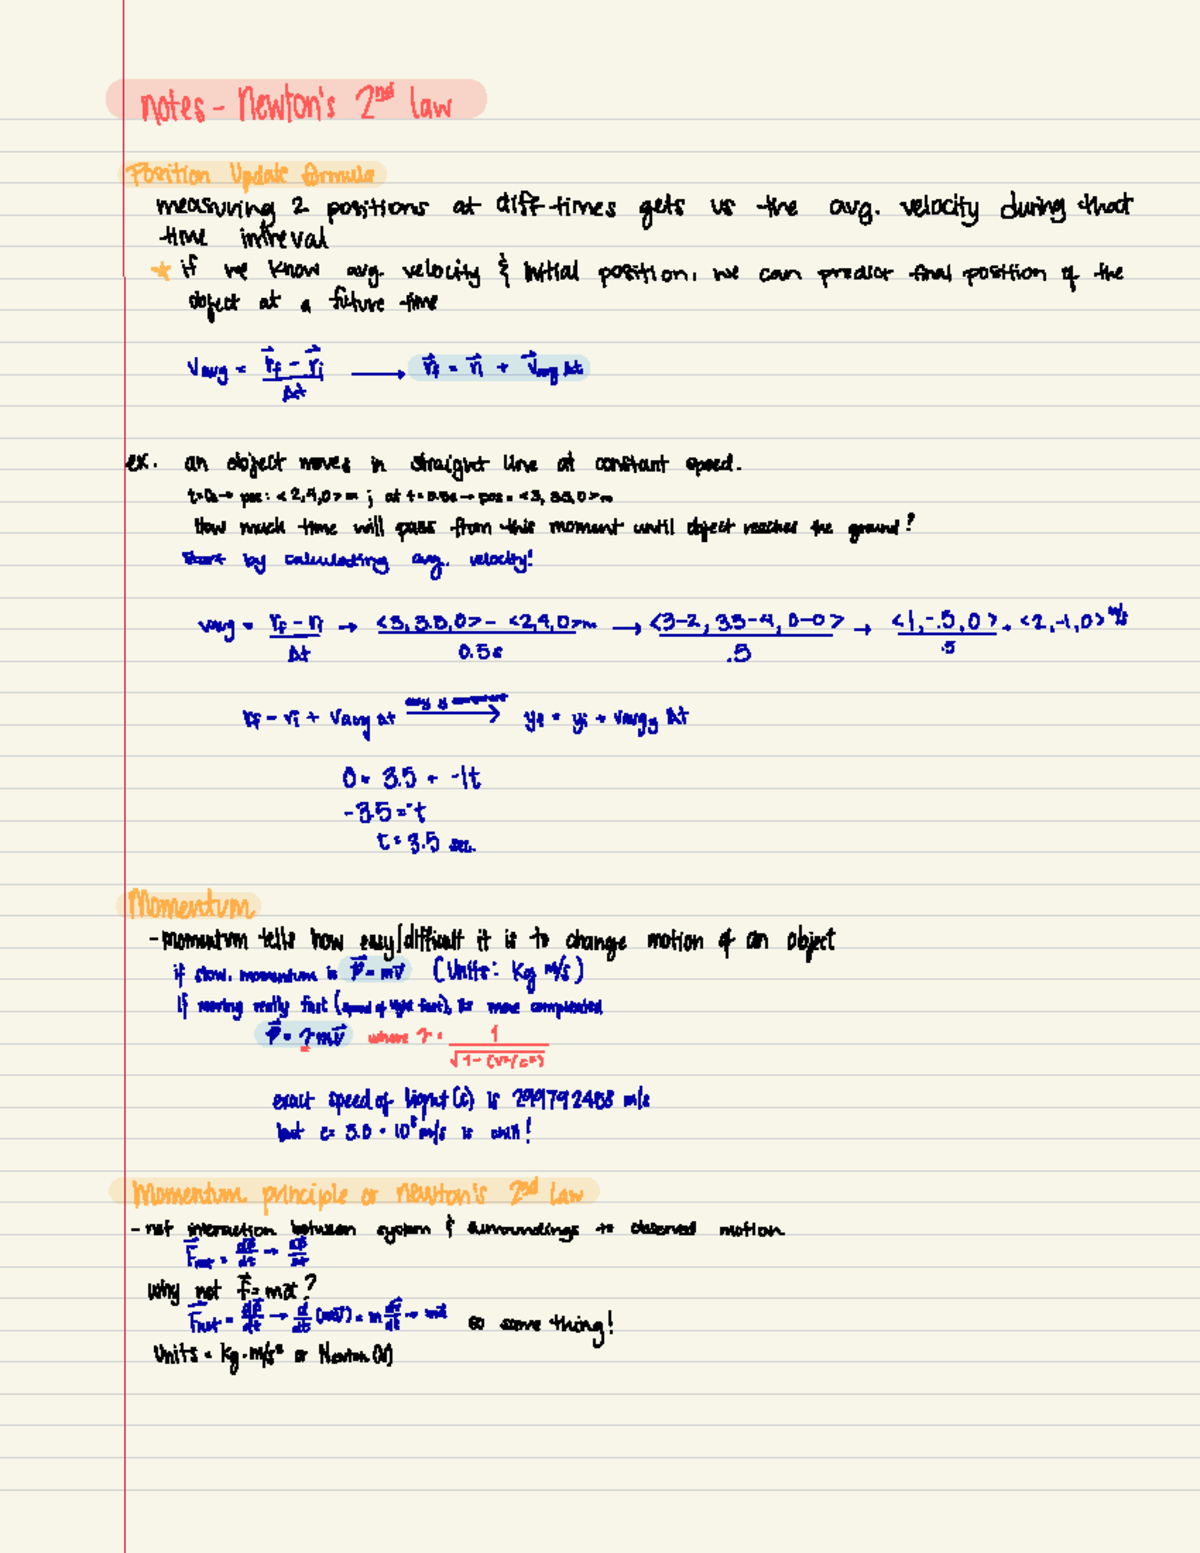 notes - Newton's 2nd law
Position Update formula
measuring 2 positions at diff times gets us the avg. velocity during that
time intreval
★ if we know avg. velocity & initial position, we can predict final position of the
object at a future time
Vavg = (r⃗f - r⃗i)/Δt ⟶ r⃗f = r⃗i + v⃗avg Δt
ex. an object moves in straight line at constant speed.
t=0s → pos: <2,4,0> m ; at t=0.5s → pos = <3, 3.5, 0> m
How much time will pass from this moment until object reaches the ground?
Start by calculating avg. velocity!
vavg = (rf - ri)/Δt → (<3, 3.5, 0> - <2,4,0> m)/0.5s → <3-2, 3.5-4, 0-0>/.5 → <1, -.5, 0>/.5 = <2, -1, 0> m/s
rf = ri + vavg Δt ⟶ yf = yi + vavgy Δt
0 = 3.5 + -1t
-3.5 = -t
t = 3.5 sec.
Momentum
- momentum tells how easy/difficult it is to change motion of an object
if slow, momentum is p⃗ = mv⃗ (Units: kg m/s)
If moving really fast (speed of light fast), its more complicated
p⃗ = γmv⃗ where γ = 1/√(1-(v²/c²))
exact speed of light (c) is 299792458 m/s
but c = 3.0 · 10⁸ m/s is chill!
Momentum principle or newton's 2nd Law
- net interaction between system & surroundings to observed motion.
F⃗net = dp⃗/dt → Δp⃗/Δt
why not f⃗ = ma⃗?
F⃗net = dp⃗/dt → d/dt (mv⃗) = m dv⃗/dt → ma⃗ so same thing!
Units = kg · m/s² or Newton (N)